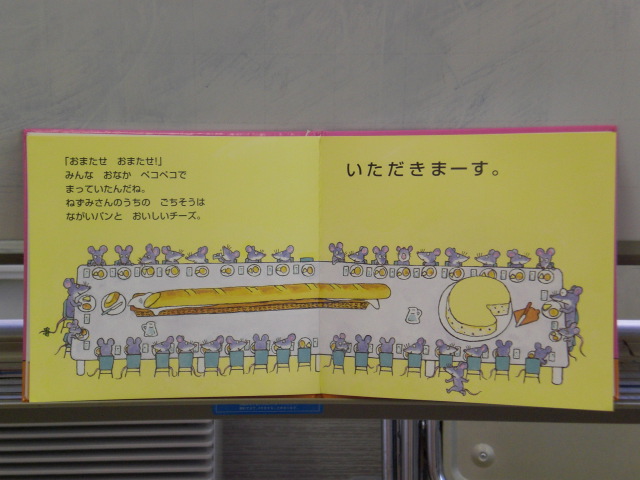 「おまたせ おまたせ!」
みんな おなか ペコペコで
まっていたんだね。
ねずみさんのうちの ごちそうは
ながいパンと おいしいチーズ。
いただきまーす。